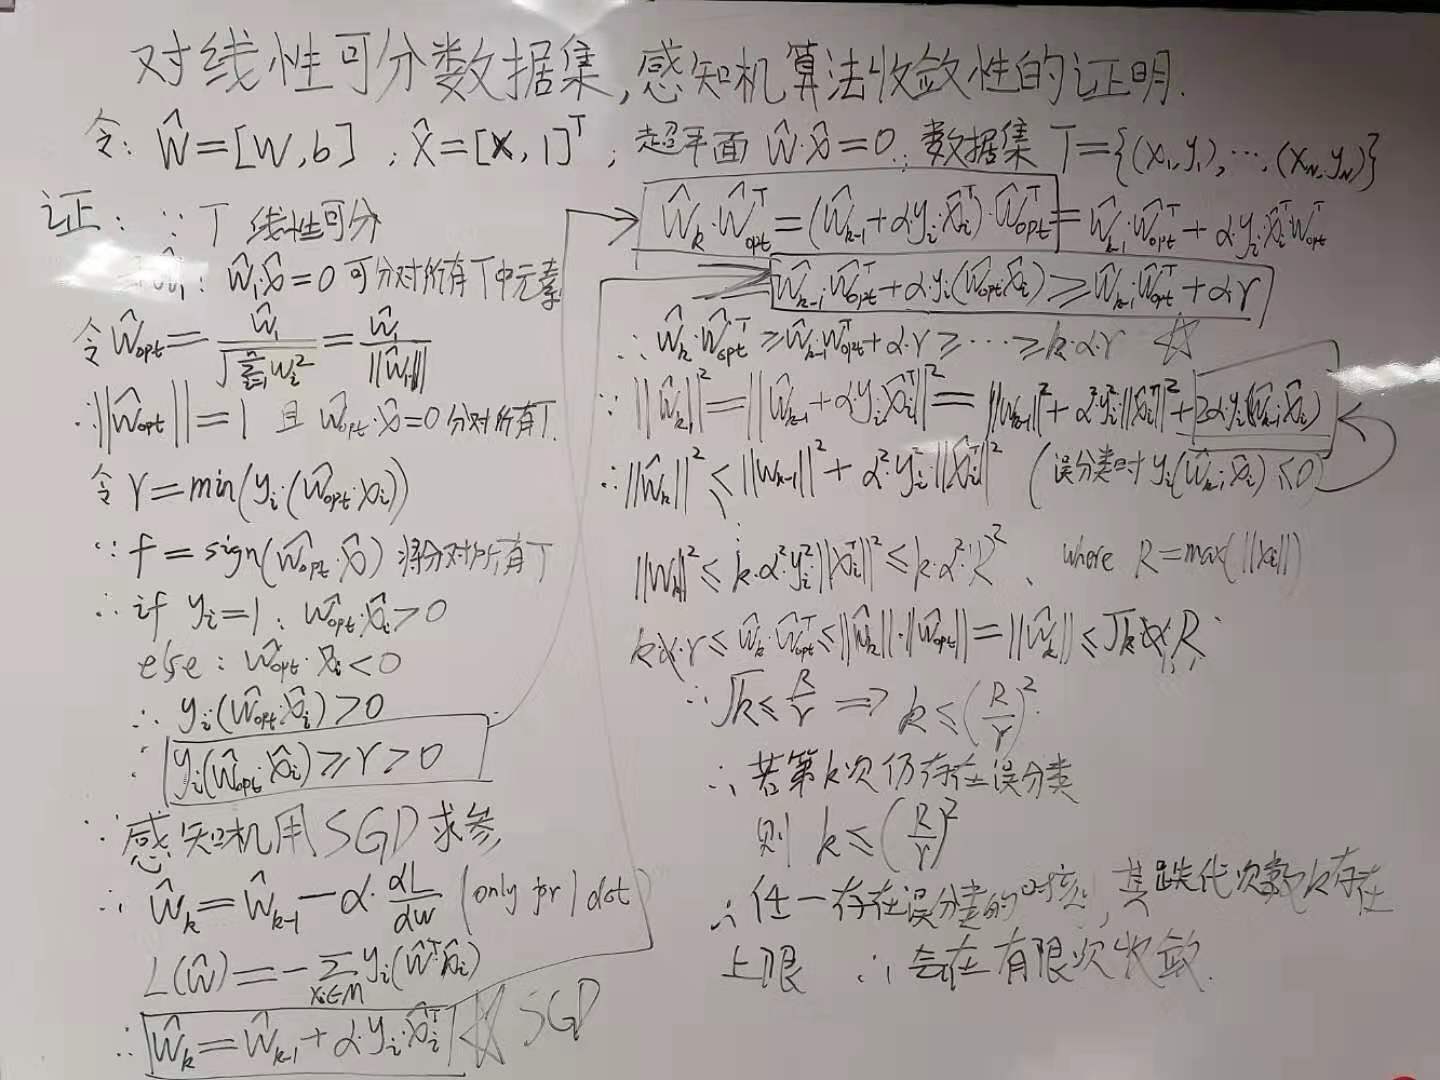 对线性可分数据集,感知机算法收敛性的证明.
令: ŵ=[w,b] ; x̂=[x,1]ᵀ ; 超平面 ŵ·x̂=0.; 数据集 T={(x₁,y₁),…,(x_N,y_N)}
证: ∵ T 线性可分
ŵ₁: ŵ₁·x̂=0 可分对所有T中元素
令 ŵ_opt = ŵ₁/√(Σ_{i=1} w_i²) = ŵ₁/||ŵ₁||
∴ ||ŵ_opt||=1 且 ŵ_opt·x̂=0 分对所有T.
令 r=min(y_i·(ŵ_opt·x̂_i))
∵ f=sign(ŵ_opt·x̂) 将分对所有T
∴ if y_i=1: ŵ_opt·x̂_i>0
else: ŵ_opt·x̂_i<0
∴ y_i·(ŵ_opt·x̂_i)>0
∴ y_i(ŵ_opt·x̂_i)≥r>0
∵ 感知机用SGD求参
∴ ŵ_k=ŵ_{k-1}-α·dL/dw (only for 1 dot)
L(ŵ)=-Σ_{x_i∈M} y_i(ŵᵀx̂_i)
∴ ŵ_k=ŵ_{k-1}+α·y_i·x̂_iᵀ ☆ SGD
ŵ_k·ŵ_optᵀ=(ŵ_{k-1}+α·y_i·x̂_iᵀ)·ŵ_optᵀ=ŵ_{k-1}·ŵ_optᵀ+α·y_i·x̂_iᵀŵ_optᵀ
=ŵ_{k-1}·ŵ_optᵀ+α·y_i(ŵ_opt·x̂_i)≥ŵ_{k-1}·ŵ_optᵀ+αr
∴ ŵ_k·ŵ_optᵀ≥ŵ_{k-1}ŵ_optᵀ+α·r≥……≥k·α·r ☆
∵ ||ŵ_k||²=||ŵ_{k-1}+α·y_i·x̂_iᵀ||²=||w_{k-1}||²+α²·y_i²·||x̂_iᵀ||²+2α·y_i(ŵ_{k-1}·x̂_i)
∴ ||ŵ_k||²≤||w_{k-1}||²+α²·y_i²·||x̂_iᵀ||² (误分类时 y_i(ŵ_{k-1}·x̂_i)≤0)
||w_k||²≤k·α²·y_i²||x̂_iᵀ||²≤k·α²·R², where R=max(||x_i||)
kα·r≤ŵ_k·ŵ_optᵀ≤||ŵ_k||·||ŵ_opt||=||ŵ_k||≤√k·α·R
∴ √k≤R/r ⟹ k≤(R/r)²
∴ 若第k次仍存在误分类
则 k≤(R/r)²
∴ 任一存在误分类的, 其跌代次数k存在
上限 ∴ 会在有限次收敛.